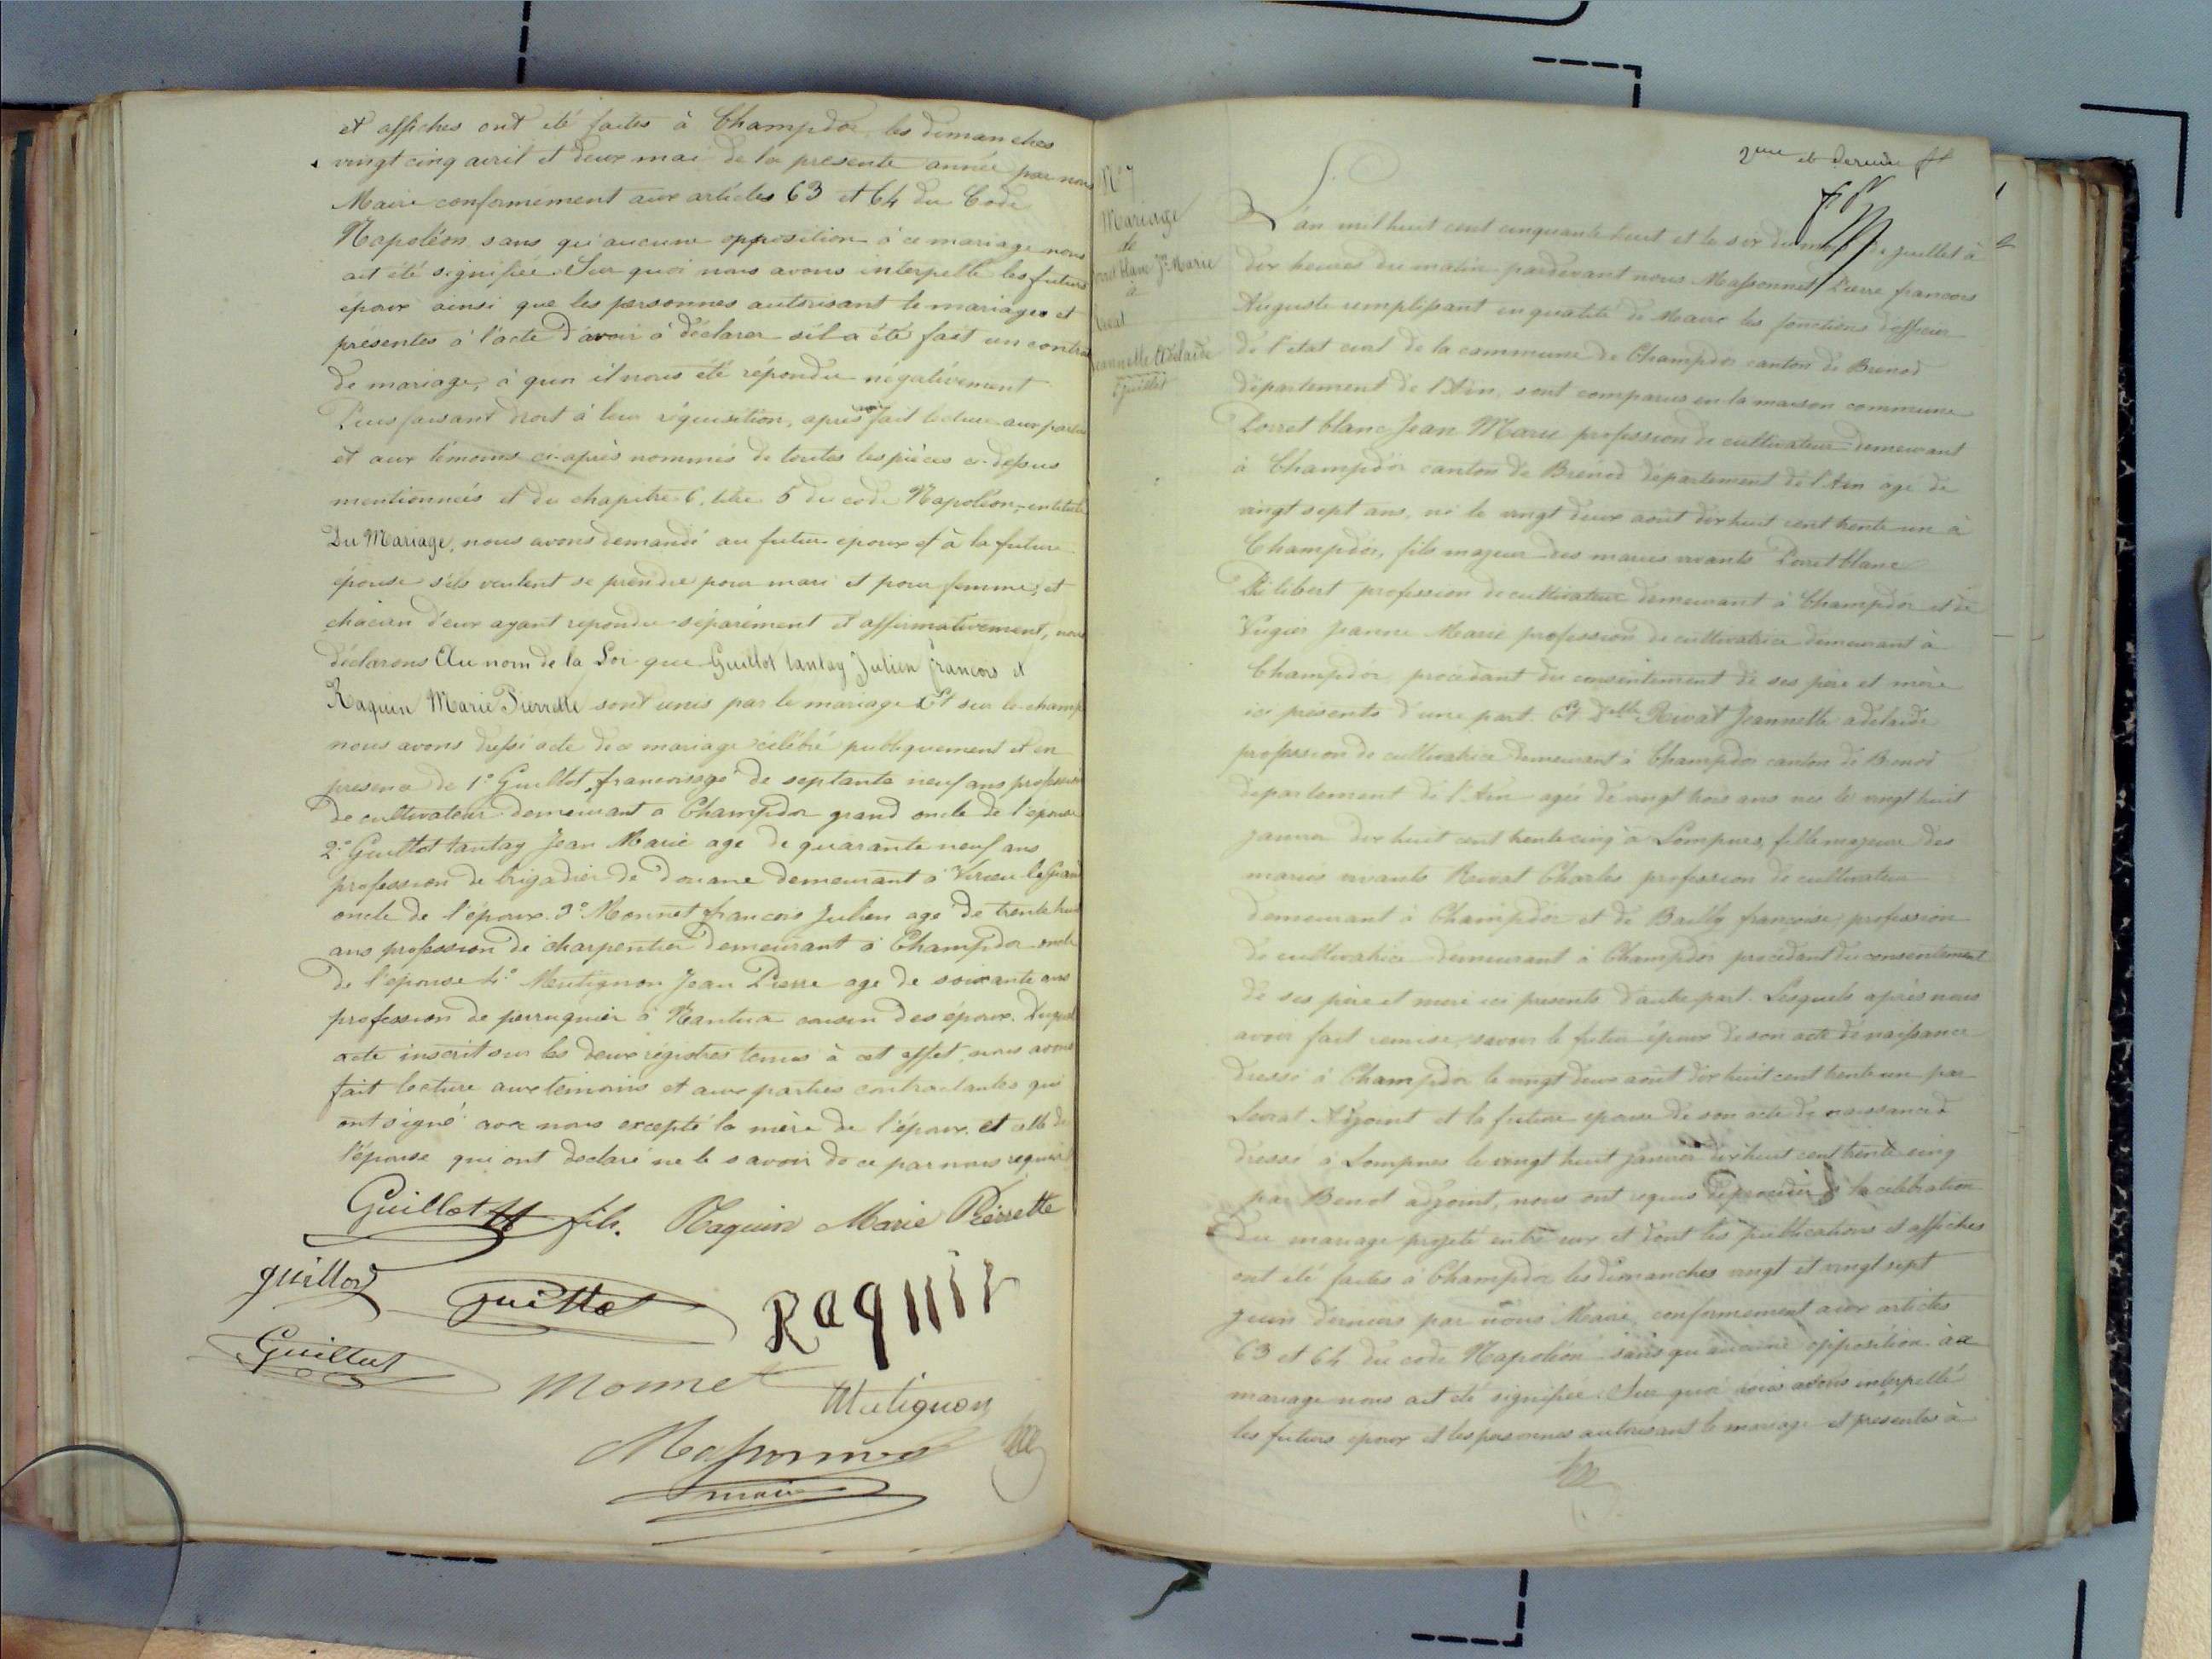 et affiches ont été faites à Champdor, les dimanches
vingt cinq avril et deux mai de la presente année par nous
Maire conformément aux articles 63 et 64 du Code
Napoléon sans qu'aucune opposition à ce mariage nous
ait été signifiée. Sur quoi nous avons interpellé les futurs
époux ainsi que les personnes autorisant le mariage et
présentes à l'acte d'avoir à déclarer s'il a été fait un contra
de mariage, à quoi il nous été répondu négativement
faisant droit à leur réquisition, après avoir fait lecture aux parties
et aux témoins ci-après nommés de toutes les pièces ci-dessus
mentionnées et du chapitre 6, titre 5 du code Napoléon, intitulé
Du Mariage, nous avons demandé au futur époux et à la future
épouse s'ils veulent se prendre pour mari et pour femme, et
chacun d'eux ayant repondu séparément et affirmativement, nous
déclarons Au nom de la Loi que Guillot tantay Julien francois et
Raquin Marie Pierrette sont unis par le mariage Et sur le champ
nous avons dressé acte de ce mariage célébré publiquement et en
presence de 1° Guillot francois age de septante neuf ans profession
de cultivateur demeurant a Champdor grand oncle de l'epouse
2° Guillot tantay Jean Marie age de quarante neuf ans
profession de brigadier de douane demeurant à Virieu le Grand
oncle de l'époux. 3° Monnet francois Julien age de trente huit
ans profession de charpentier demeurant à Champdor oncle
de l'épouse 4° Mutignon Jean Pierre age de soixante ans
profession de perruquier à Nantua cousin des époux. Duquel
acte inscrit sur les deux régistres tenus à cet effet, nous avons
fait lecture aux temoins et aux parties contractantes qui
ont signé avec nous excepté la mère de l'époux et celle de
l'épouse qui ont declaré ne le savoir de ce par nous requis
Guillot tt fils. Raquin Marie Pierrette
guillot Guillot Raquin
Guillot
Monnet Mutignon
Massonnet
maire
2eme et dernier ft
N° 7
Mariage
de
blanc Jn Marie
à
Rivat
Jeannette Adelaide
6 juillet
L'an mil huit cent cinquante huit et le six du mois de juillet à
dix heures du matin pardevant nous Massonnet Pierre francois
Auguste remplissant en qualité de Maire les fonctions d'officier
de l'etat civil de la commune de Champdor canton de Brenod
département de l'Ain, sont comparus en la maison commune
Porret blanc Jean Marie profession de cultivateur demeurant
à Champdor canton de Brenod département de l'Ain agé de
vingt sept ans, né le vingt deux août dix huit cent trente un à
Champdor, fils majeur des maries vivants Porret blanc
Philibert profession de cultivateur demeurant à Champdor et de
Jeanne Marie profession de cultivatrice demeurant à
Champdor procédant du consentement de ses père et mère
ici présents d'une part. Et Delle Rivat Jeannette adelaide
profession de cultivatrice demeurant à Champdor canton de Brenod
departement de l'Ain agée de vingt trois ans née le vingt huit
janvier dix huit cent trente cinq à Lompnes, fille majeure des
maries vivants Rivat Charles profession de cultivateur
demeurant à Champdor et de Bailly françoise profession
de cultivatrice demeurant à Champdor procédant du consentement
de ses père et mere ici presents d'autre part. Lesquels après nous
avoir fait remise, savoir le futur époux de son acte de naissance
dressé à Champdor le vingt deux août dix huit cent trente un par
Adjoint et la future epouse de son acte de naissance
dressé à Lompnes le vingt huit janvier dix huit cent trente cinq
par Benot adjoint, nous ont requis de procéder à la célébration
du mariage projeté entre eux et dont les publications et affiches
ont été faites à Champdor les dimanches vingt et vingt sept
juin derniers par nous Maire, conformement aux articles
63 et 64 du code Napoléon sans qu'aucune opposition à ce
mariage nous ait été signifiée. Sur quoi nous avons interpellé
les futurs époux et les personnes autorisant le mariage et presentes à